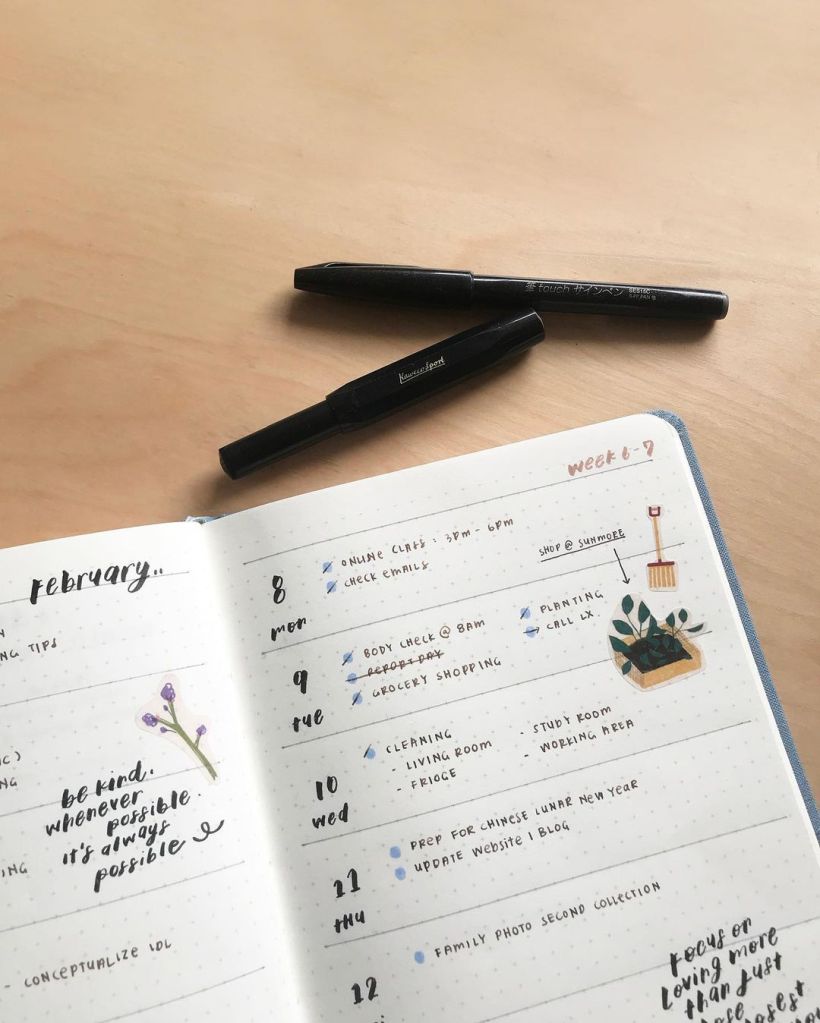 筆touch サインペン SES15C
Kaweco Sport
February..
NG TIPS
NG
be kind.
whenever
possible.
it's always
possible
ING
- CONCEPTUALIZE
WEEK 6-7
8
mon
ONLINE CLASS : 3PM - 6PM
CHECK EMAILS
SHOP @ SUNMORE
9
tue
BODY CHECK @ 8AM
REPORT DAY
GROCERY SHOPPING
PLANTING
CALL LX
10
wed
CLEANING
- LIVING ROOM
- FRIDGE
- STUDY ROOM
- WORKING AREA
11
thu
PREP FOR CHINESE LUNAR NEW YEAR
UPDATE WEBSITE | BLOG
12
FAMILY PHOTO SECOND COLLECTION
Focus on
Loving more
than just